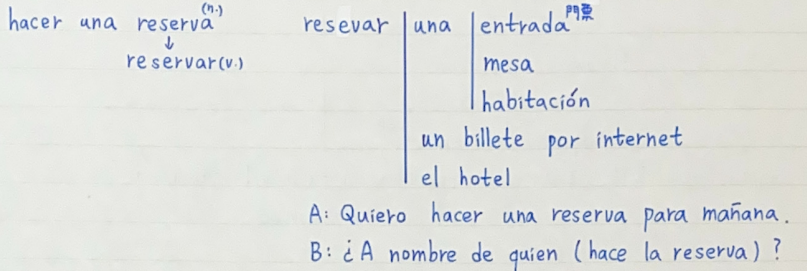 hacer una reserva (n.)
↓
reservar (v.)
resevar una entrada 門票
mesa
habitación
un billete por internet
el hotel
A: Quiero hacer una reserva para mañana.
B: ¿A nombre de quien (hace la reserva)?